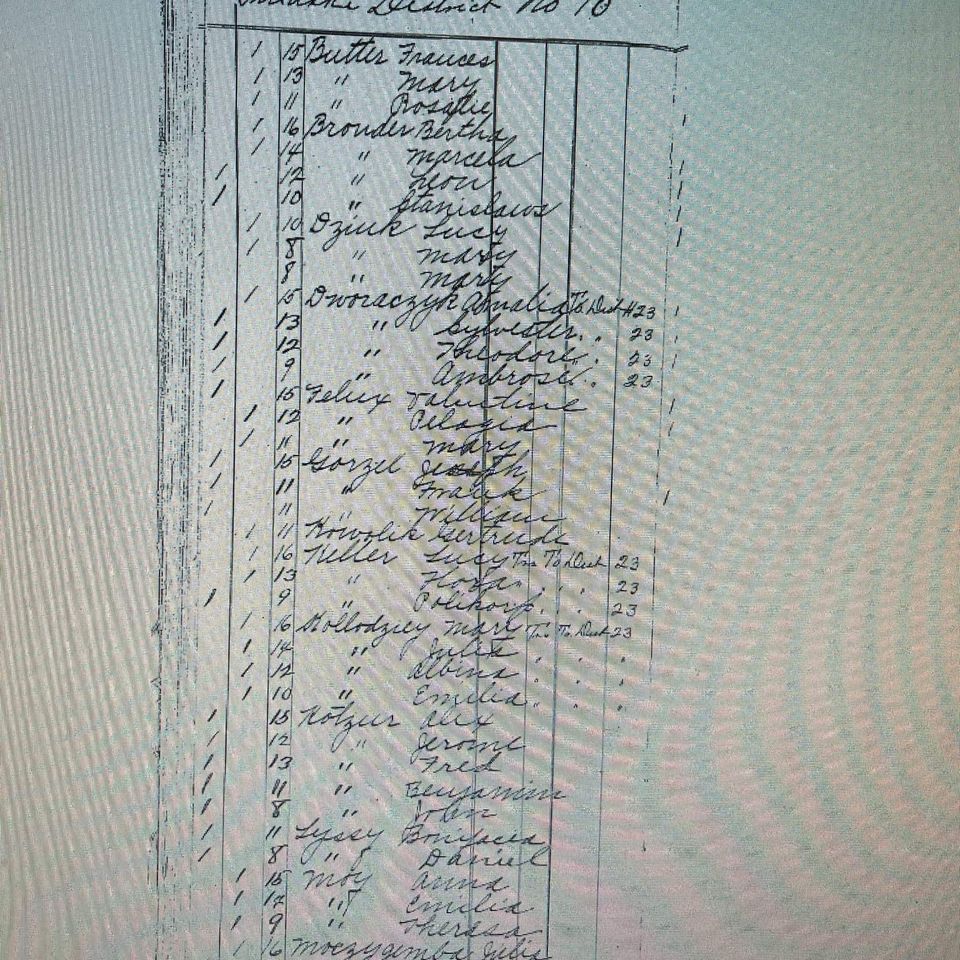 District No 10
1 15 Butter Frances
1 13 " Mary
1 11 " Rosalie
1 16 Bronder Bertha
1 14 " Marcela
1 12 " Leon
1 10 " Stanislaws
1 10 Dziuk Lucy
1 8 " Mary
8 " Marty
1 15 Dworaczyk Amalia To Dist #23 1
1 13 " Sylvester " . 23 1
1 12 " Theodore " . 23 1
1 9 " Ambrose " . 23
1 15 Felux Valentine
1 12 " Pelagia
1 11 " Mary
1 15 Gorzel Joseph
1 11 " Frank
1 11 " William
1 11 Kowolik Gertrude
1 16 Keller Lucy Trs To Dist 23
1 13 " Flora " . . 23
1 9 " Polikarp . . 23
1 16 Kollodziey Mary Trs To Dist 23
1 14 " Julia " " "
1 12 " Albina " " "
1 10 " Emilia " " "
1 15 Kotzur Alex
1 12 " Jerome
1 13 " Fred
1 11 " Benjamin
1 8 " John
1 11 Lyssy Bonifacea
1 8 " Daniel
1 15 Moy Anna
1 12 " Emilia
1 9 " Theresa
1 16 Moczygemba Julia